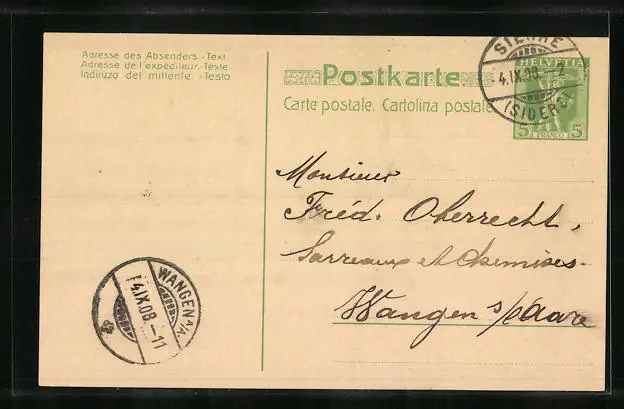 Adresse des Absenders - Text
Adresse de l'expéditeur - Texte
Indirizzo del mittente. - Testo
Postkarte
Carte postale. Cartolina postale
SIERRE
4.IX.08.-7
(SIDERS)
HELVETIA
5 FRANCO 5
Monsieur
Fréd. Oberrecht,
Sarreaux et chemises.
Wangen s/Aare
WANGEN A/A
4.IX.08.-11